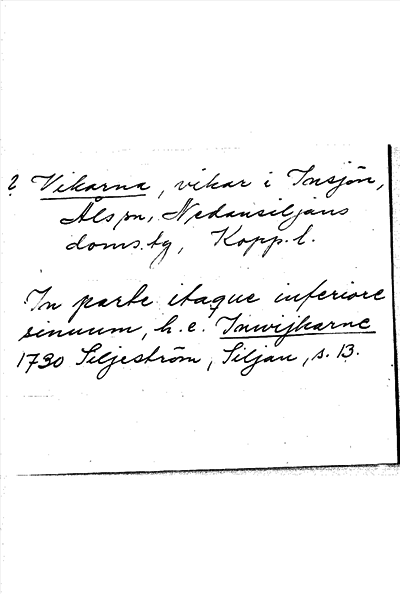 ? Vikarna, vikar i Insjön,
Åls sn, Nedansiljans
doms.tg, Kopp. l.
In parte itaque inferiore
sinuum, h.e. Inwijkarne
1730 Siljeström, Siljan, s. 13.